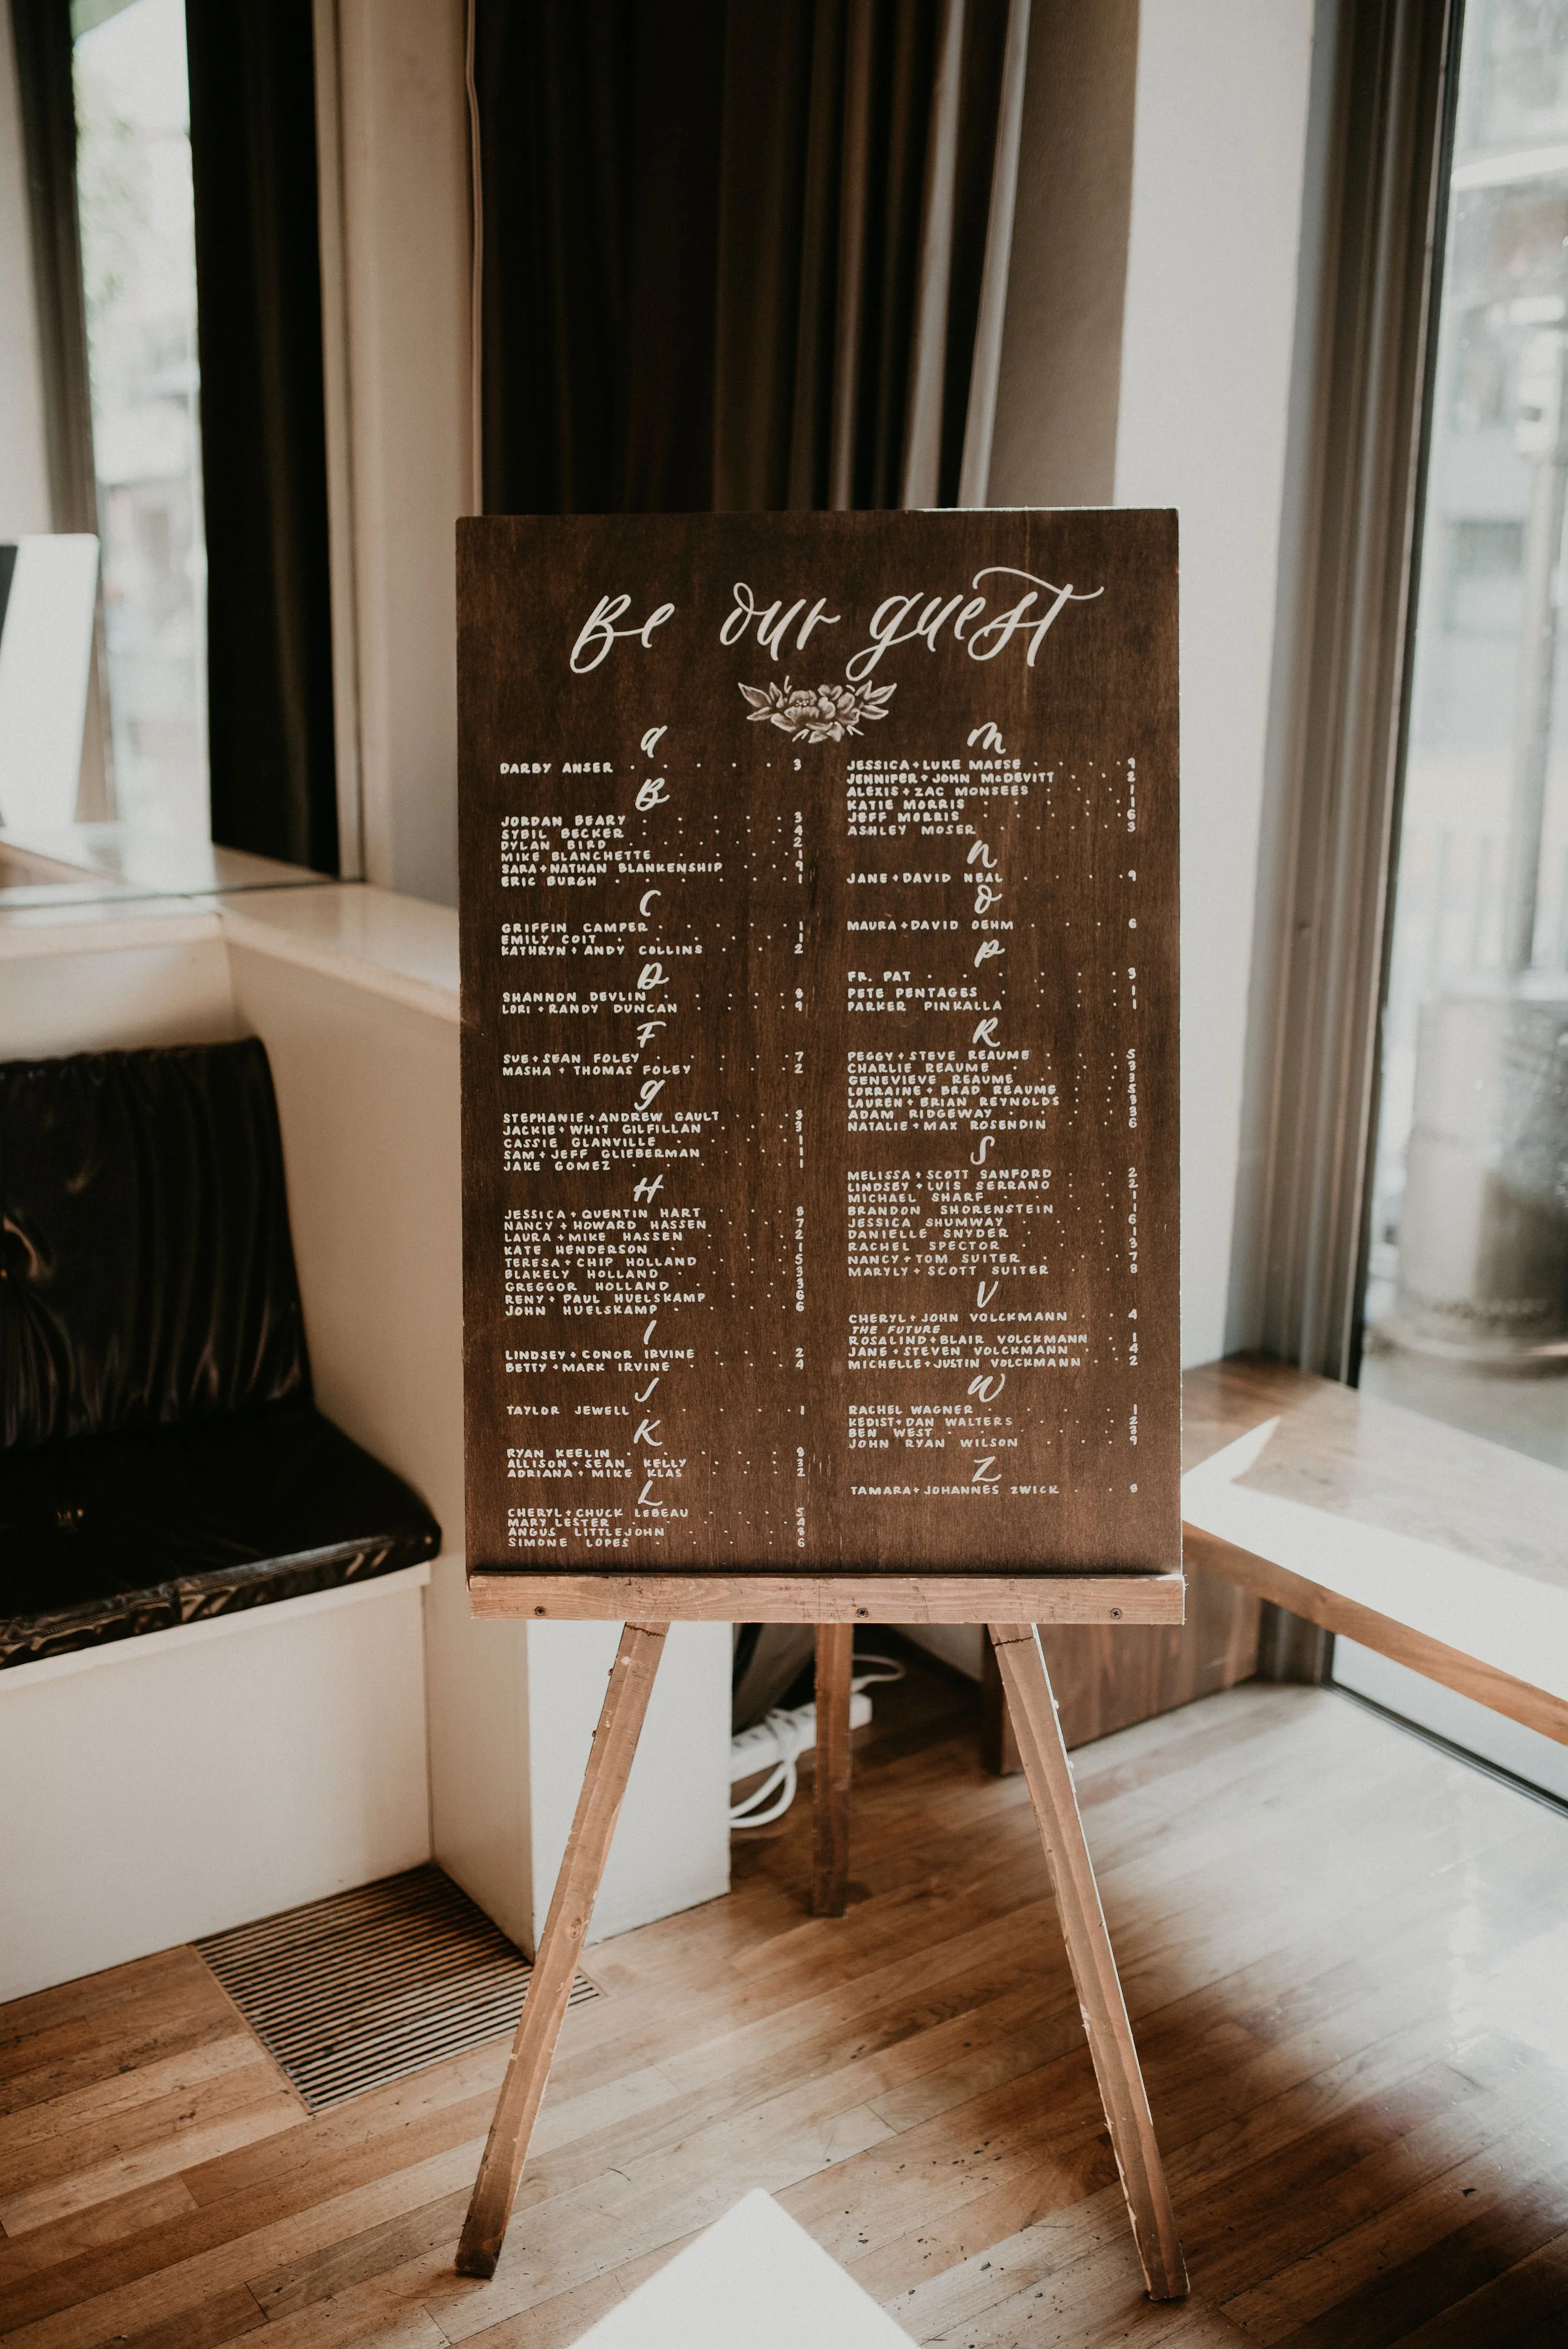 Be our guest
a
DARBY ANSER 3
B
JORDAN BEARY 3
SYBIL BECKER 4
DYLAN BIRD 2
MIKE BLANCHETTE 1
SARA + NATHAN BLANKENSHIP 9
ERIC BURGH 1
C
GRIFFIN CAMPER 1
EMILY COIT 1
KATHRYN + ANDY COLLINS 2
D
SHANNON DEVLIN 8
LORI + RANDY DUNCAN 9
F
SUE + SEAN FOLEY 7
MASHA + THOMAS FOLEY 2
g
STEPHANIE + ANDREW GAULT 3
JACKIE + WHIT GILFILLAN 3
CASSIE GLANVILLE 1
SAM + JEFF GLIEBERMAN 1
JAKE GOMEZ 1
H
JESSICA + QUENTIN HART 8
NANCY + HOWARD HASSEN 7
LAURA + MIKE HASSEN 2
KATE HENDERSON 1
TERESA + CHIP HOLLAND 5
BLAKELY HOLLAND 3
GREGGOR HOLLAND 3
RENY + PAUL HUELSKAMP 6
JOHN HUELSKAMP 6
I
LINDSEY + CONOR IRVINE 2
BETTY + MARK IRVINE 4
J
TAYLOR JEWELL 1
K
RYAN KEELIN 8
ALLISON + SEAN KELLY 3
ADRIANA + MIKE KLAS 2
L
CHERYL + CHUCK LEBEAU 5
MARY LESTER 4
ANGUS LITTLEJOHN 8
SIMONE LOPES 6
m
JESSICA + LUKE MAESE 9
JENNIFER + JOHN McDEVITT 2
ALEXIS + ZAC MONSEES 1
KATIE MORRIS 1
JEFF MORRIS 6
ASHLEY MOSER 3
n
JANE + DAVID NEAL 9
O
MAURA + DAVID OEHM 6
P
FR. PAT 9
PETE PENTAGES 1
PARKER PINKALLA 1
R
PEGGY + STEVE REAUME 5
CHARLIE REAUME 3
GENEVIEVE REAUME 3
LORRAINE + BRAD REAUME 5
LAUREN + BRIAN REYNOLDS
ADAM RIDGEWAY 3
NATALIE + MAX ROSENDIN 6
S
MELISSA + SCOTT SANFORD 2
LINDSEY + LUIS SERRANO 2
MICHAEL SHARF 1
BRANDON SHORENSTEIN 1
JESSICA SHUMWAY 6
DANIELLE SNYDER 1
RACHEL SPECTOR 3
NANCY + TOM SUITER 7
MARYLY + SCOTT SUITER 8
V
CHERYL + JOHN VOLCKMANN 4
THE FUTURE
ROSALIND + BLAIR VOLCKMANN 1
JANE + STEVEN VOLCKMANN 4
MICHELLE + JUSTIN VOLCKMANN 2
W
RACHEL WAGNER 1
KEDIST + DAN WALTERS 2
BEN WEST
JOHN RYAN WILSON 9
Z
TAMARA + JOHANNES ZWICK 8